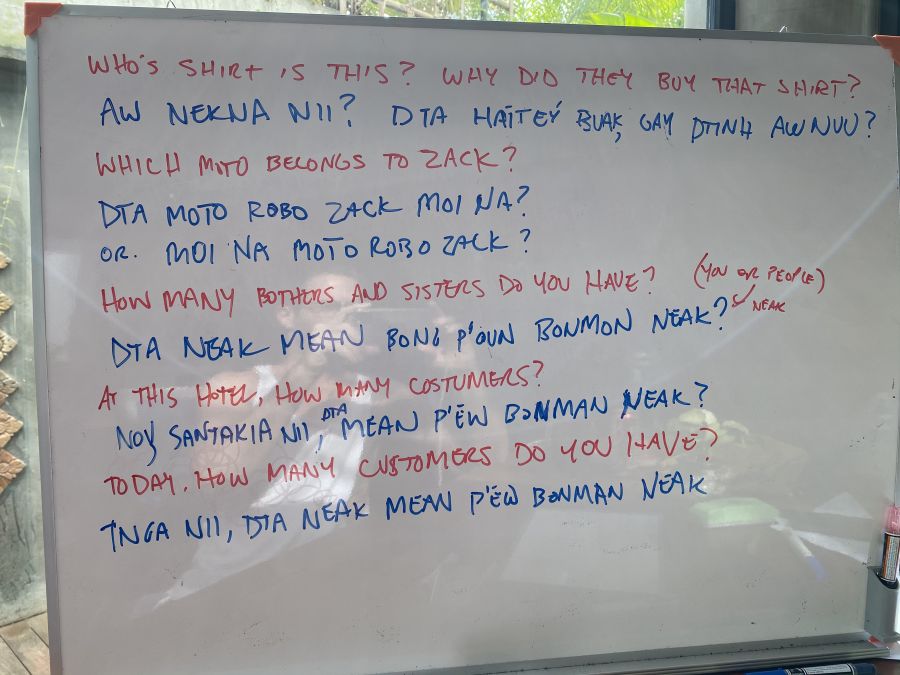 WHO'S SHIRT IS THIS? WHY DID THEY BUY THAT SHIRT?
AW NEKNA NII? DTA HAITEÝ BUAK, GAY DTINH AW NUU?
WHICH MOTO BELONGS TO ZACK?
DTA MOTO ROBO ZACK MOI NA?
OR. MOI NA MOTO ROBO ZACK?
HOW MANY BOTHERS AND SISTERS DO YOU HAVE? (YOU OR PEOPLE)
DTA NEAK MEAN BONG P'OUN BONMON NEAK? NEAK
AT THIS HOTEL, HOW MANY COSTUMERS?
NOY SANTAKIA NII, DTA MEAN P'ĒW BONMAN NEAK?
TODAY. HOW MANY CUSTOMERS DO YOU HAVE?
TNGA NII, DTA NEAK MEAN P'ĒW BONMAN NEAK